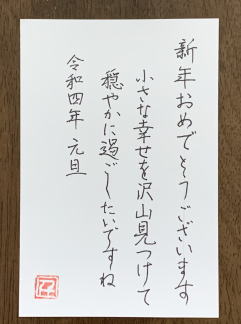 新年おめでとうございます
小さな幸せを沢山見つけて
穏やかに過ごしたいですね
令和四年 元旦